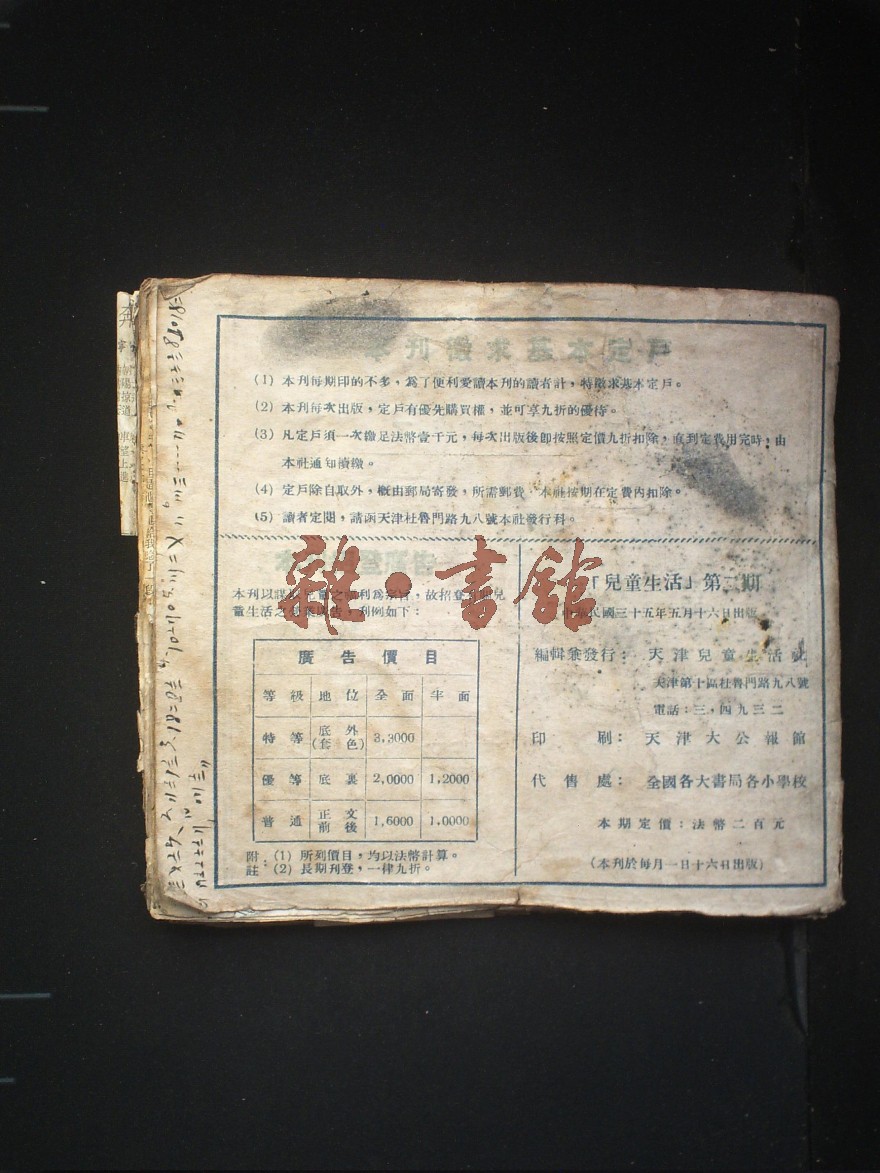 本刊徵求基本定戶
(1) 本刊每期印的不多，為了便利愛讀本刊的讀者計，特徵求基本定戶。
(2) 本刊每次出版，定戶有優先購買權，並可享九折的優待。
(3) 凡定戶須一次繳足法幣壹千元，每次出版後卽按照定價九折扣除，直到定費用完時，由
本社通知續繳。
(4) 定戶除自取外，概由郵局寄發，所需郵費，本社按期在定費內扣除。
(5) 讀者定閱，請函天津杜魯門路九八號本社發行科。
廣告
本刊以謀 兒童之 利為宗旨，故招登 兒
童生活之 廣告，刊例如下：
廣告價目
等級 地位 全面 半面
特等 底外(套色) 3,3000
優等 底裏 2,0000 1,2000
普通 正文前後 1,6000 1,0000
附註：(1) 所列價目，均以法幣計算。
(2) 長期刊登，一律九折。
「兒童生活」第二期
中華民國三十五年五月十六日出版
編輯兼發行：天津兒童生活社
天津第十區杜魯門路九八號
電話：三，四九三二
印刷：天津大公報館
代售處：全國各大書局各小學校
本期定價：法幣二百元
（本刊於每月一日十六日出版）
雜·書館